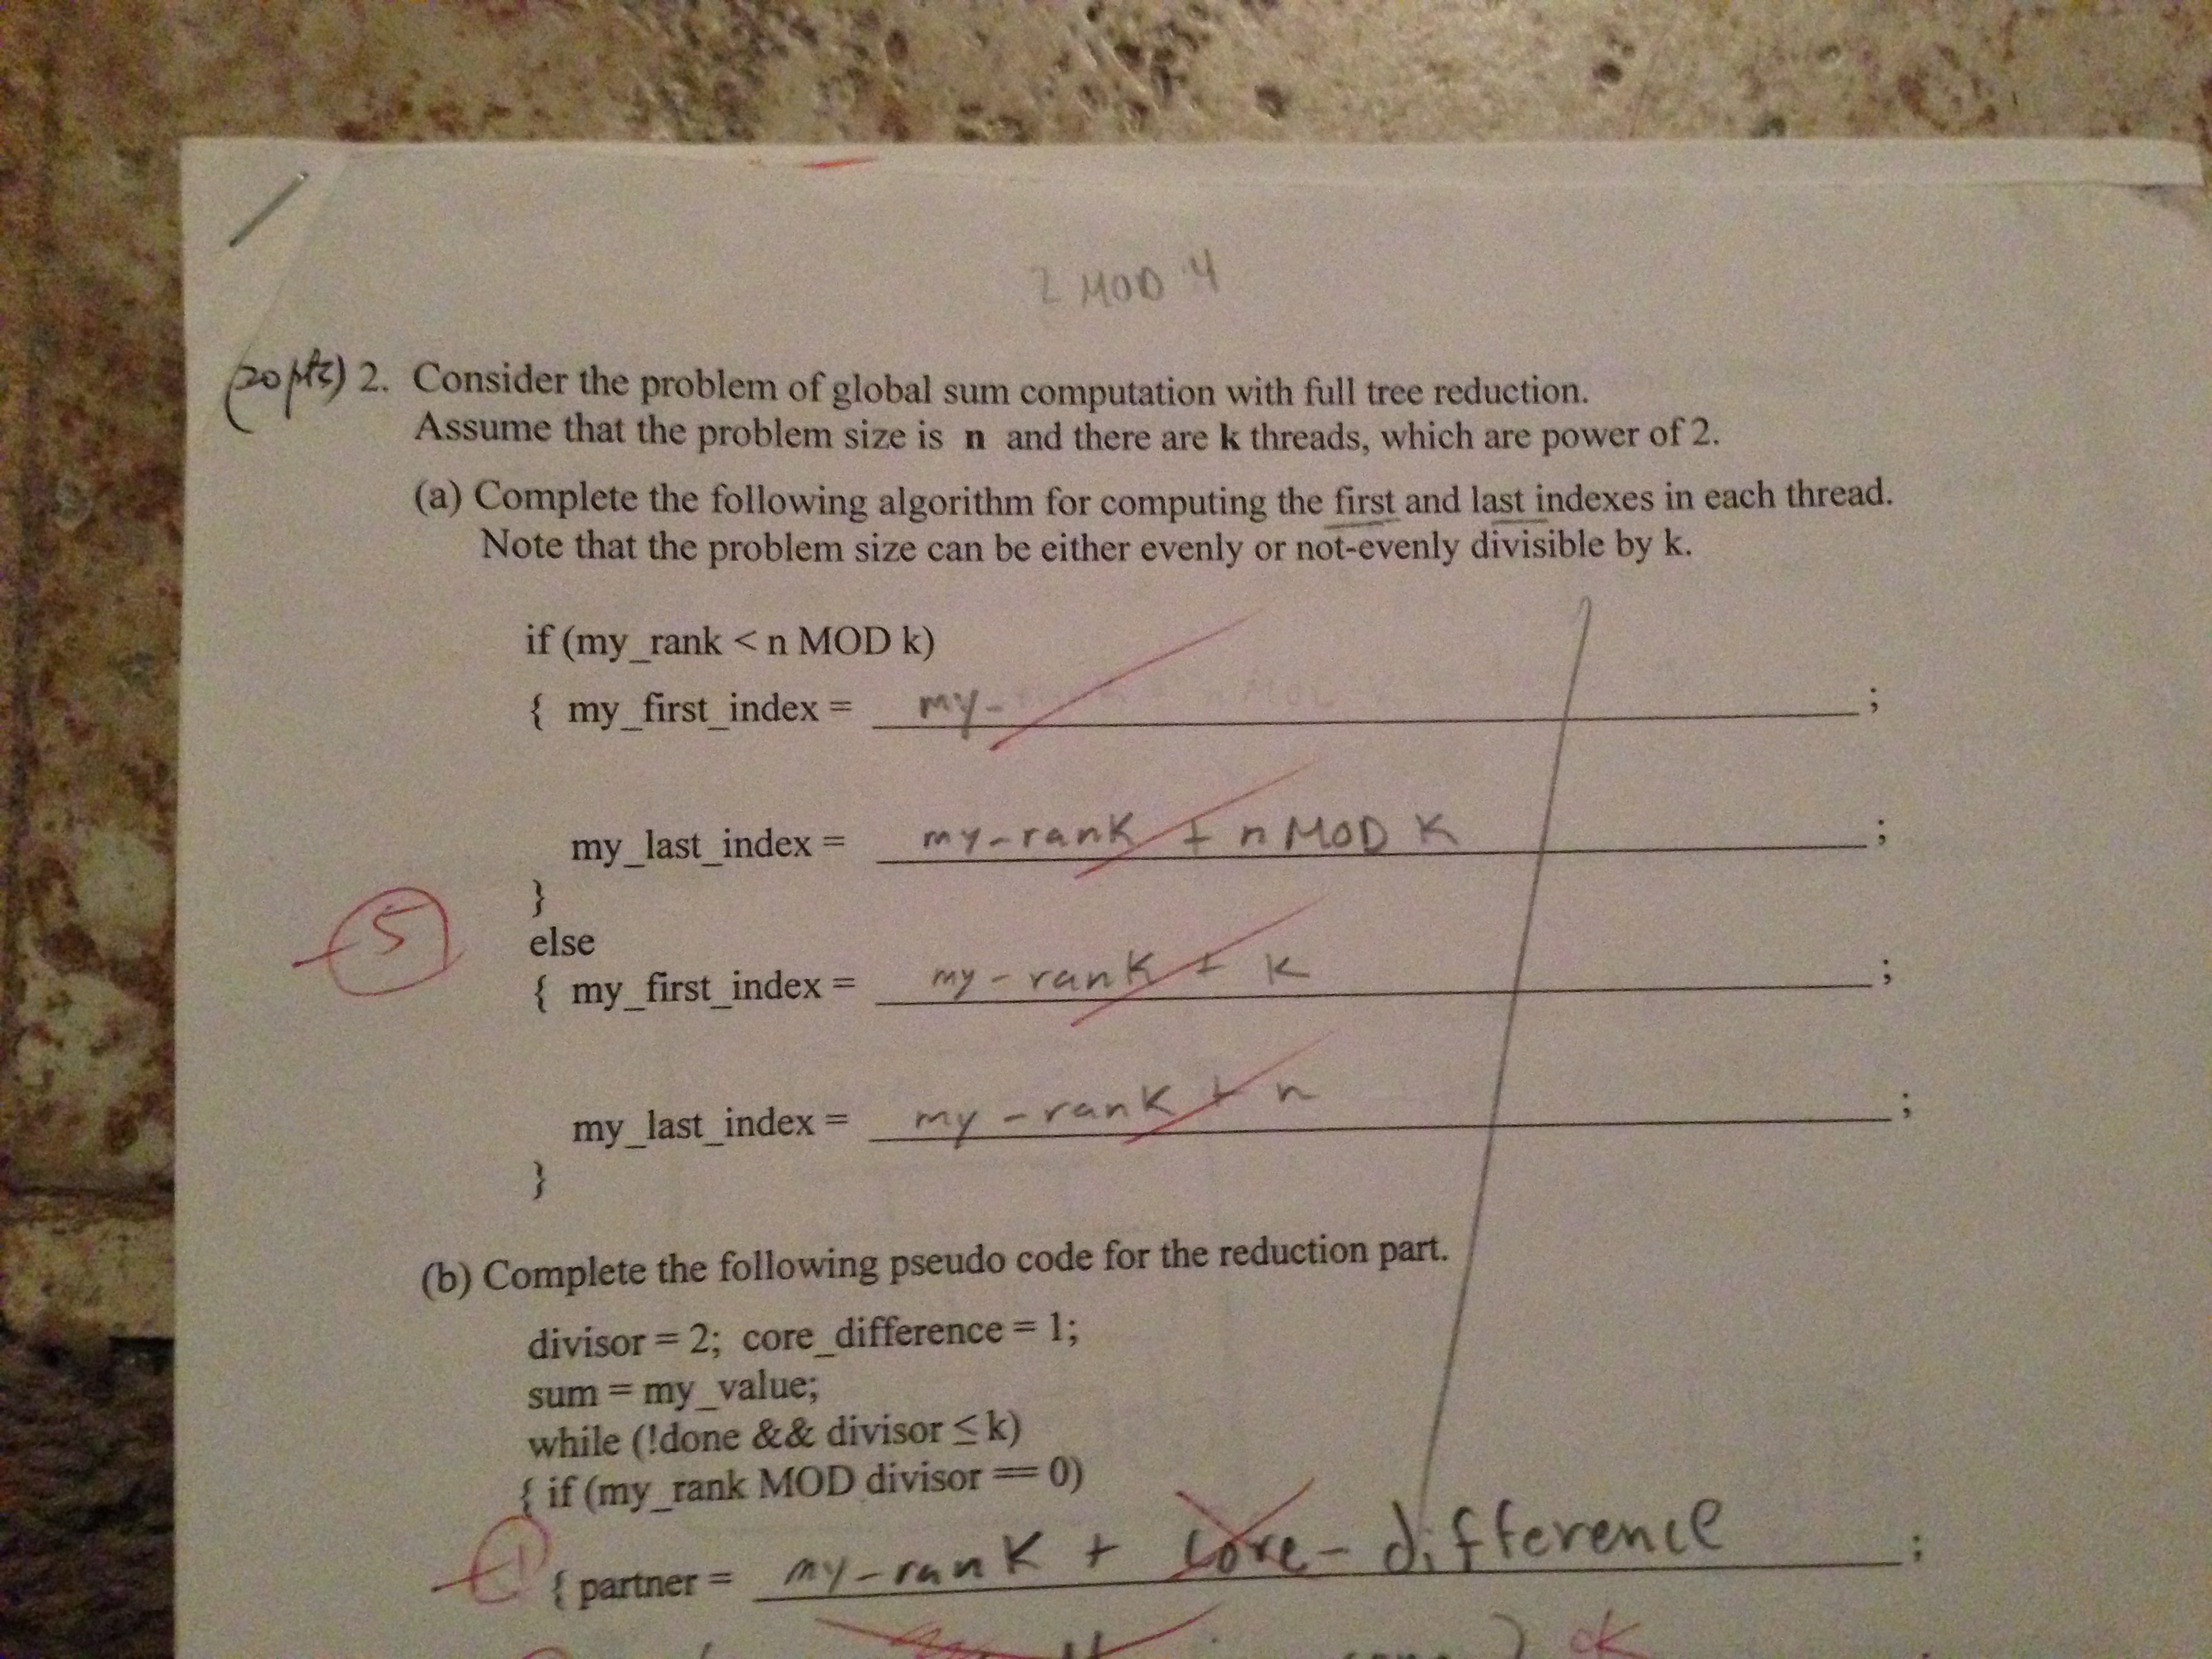 2 MOD 4
(20 pts) 2. Consider the problem of global sum computation with full tree reduction.
Assume that the problem size is n and there are k threads, which are power of 2.
(a) Complete the following algorithm for computing the first and last indexes in each thread.
Note that the problem size can be either evenly or not-evenly divisible by k.
if (my_rank < n MOD k)
{ my_first_index = my- ;
my_last_index = my-rank + n MOD K ;
}
else
-5
{ my_first_index = my-rank + k ;
my_last_index = my-rank + n ;
}
(b) Complete the following pseudo code for the reduction part.
divisor = 2; core_difference = 1;
sum = my_value;
while (!done && divisor ≤ k)
{ if (my_rank MOD divisor == 0)
-1
{ partner = my-rank + core-difference ;